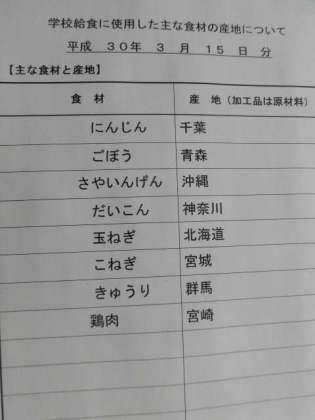 学校給食に使用した主な食材の産地について
平成 30年 3 月 15 日 分
【主な食材と産地】
食 材 産 地（加工品は原材料）
にんじん 千葉
ごぼう 青森
さやいんげん 沖縄
だいこん 神奈川
玉ねぎ 北海道
こねぎ 宮城
きゅうり 群馬
鶏肉 宮崎